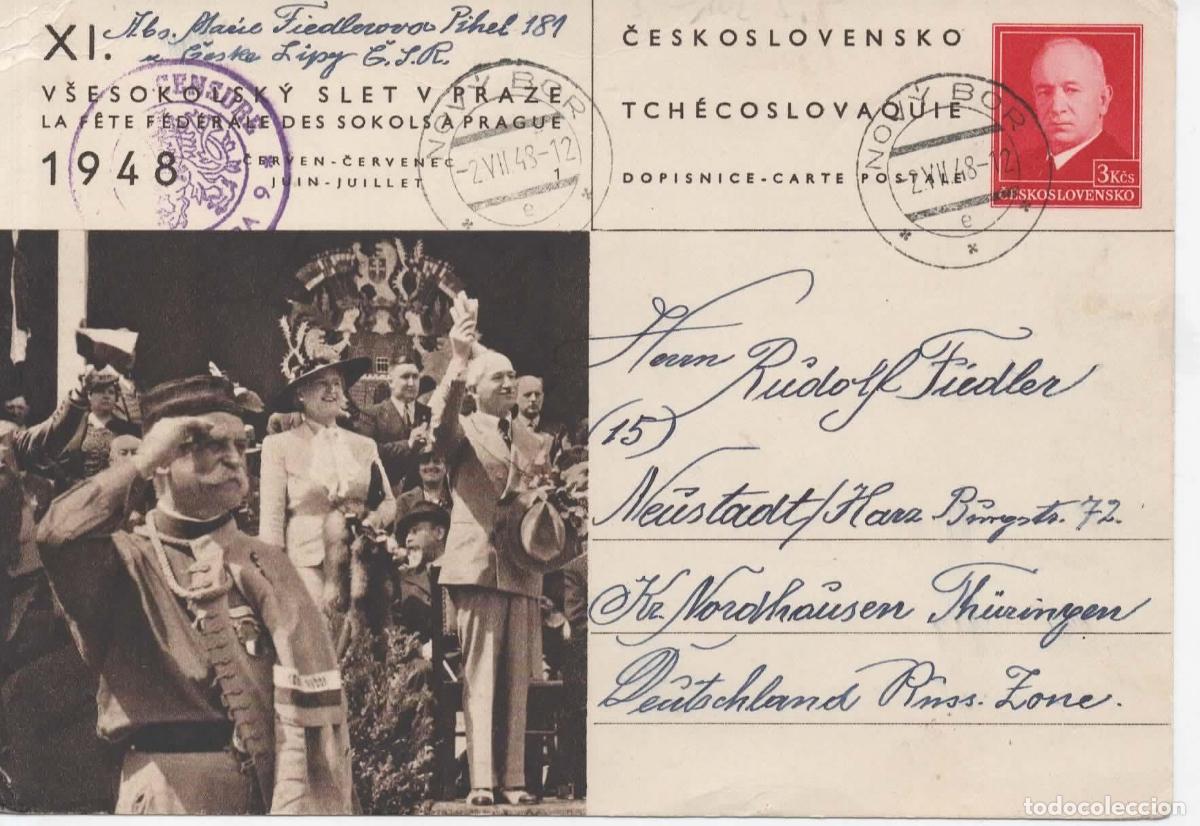 Abs. Marie Fiedlerova Pihel 181
u Česke Lípy Č.S.R.
XI.
VŠESOKOLSKÝ SLET V PRAZE
LA FÊTE FÉDÉRALE DES SOKOLS À PRAGUE
1948
ČERVEN-ČERVENEC
JUIN-JUILLET
NOVÝ BOR
-2.VII.48-12
1
e
ČESKOSLOVENSKO
TCHÉCOSLOVAQUIE
DOPISNICE-CARTE POSTALE
NOVÝ BOR
-2.VII.48-12
e
3Kčs
ČESKOSLOVENSKO
Herrn Rudolf Fiedler
(15)
Neustadt/Harz Burgstr. 72.
Kr. Nordhausen Thüringen
Deutschland Russ. Zone.
todocoleccion